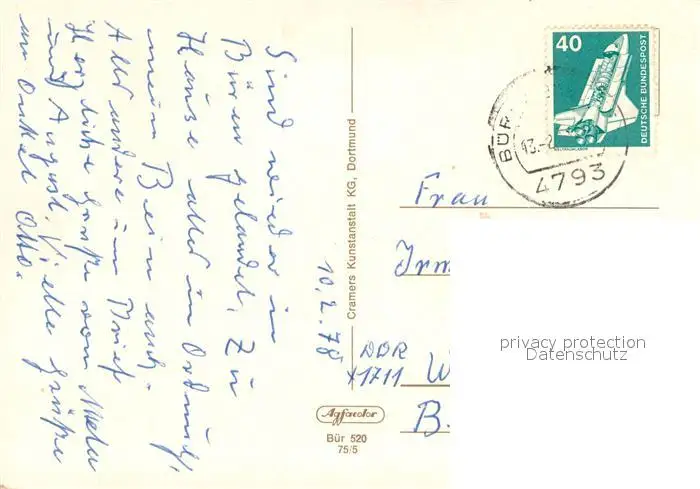 Sind wieder in
Büren gelandet, Zu
Hause alles in Ordnung,
mein Bein auch.
Alles andere im Brief
Herzliche Grüße von
und August. Viele Grüße
an Onkel Otto.
10.2.78
Cramers Kunstanstalt KG, Dortmund
Agfacolor
Bür 520
75/5
40
DEUTSCHE BUNDESPOST
WELTRAUMLABOR
BÜR
13.-2
4793
Frau
Irm
DDR
X1711 W
B.
privacy protection
Datenschutz